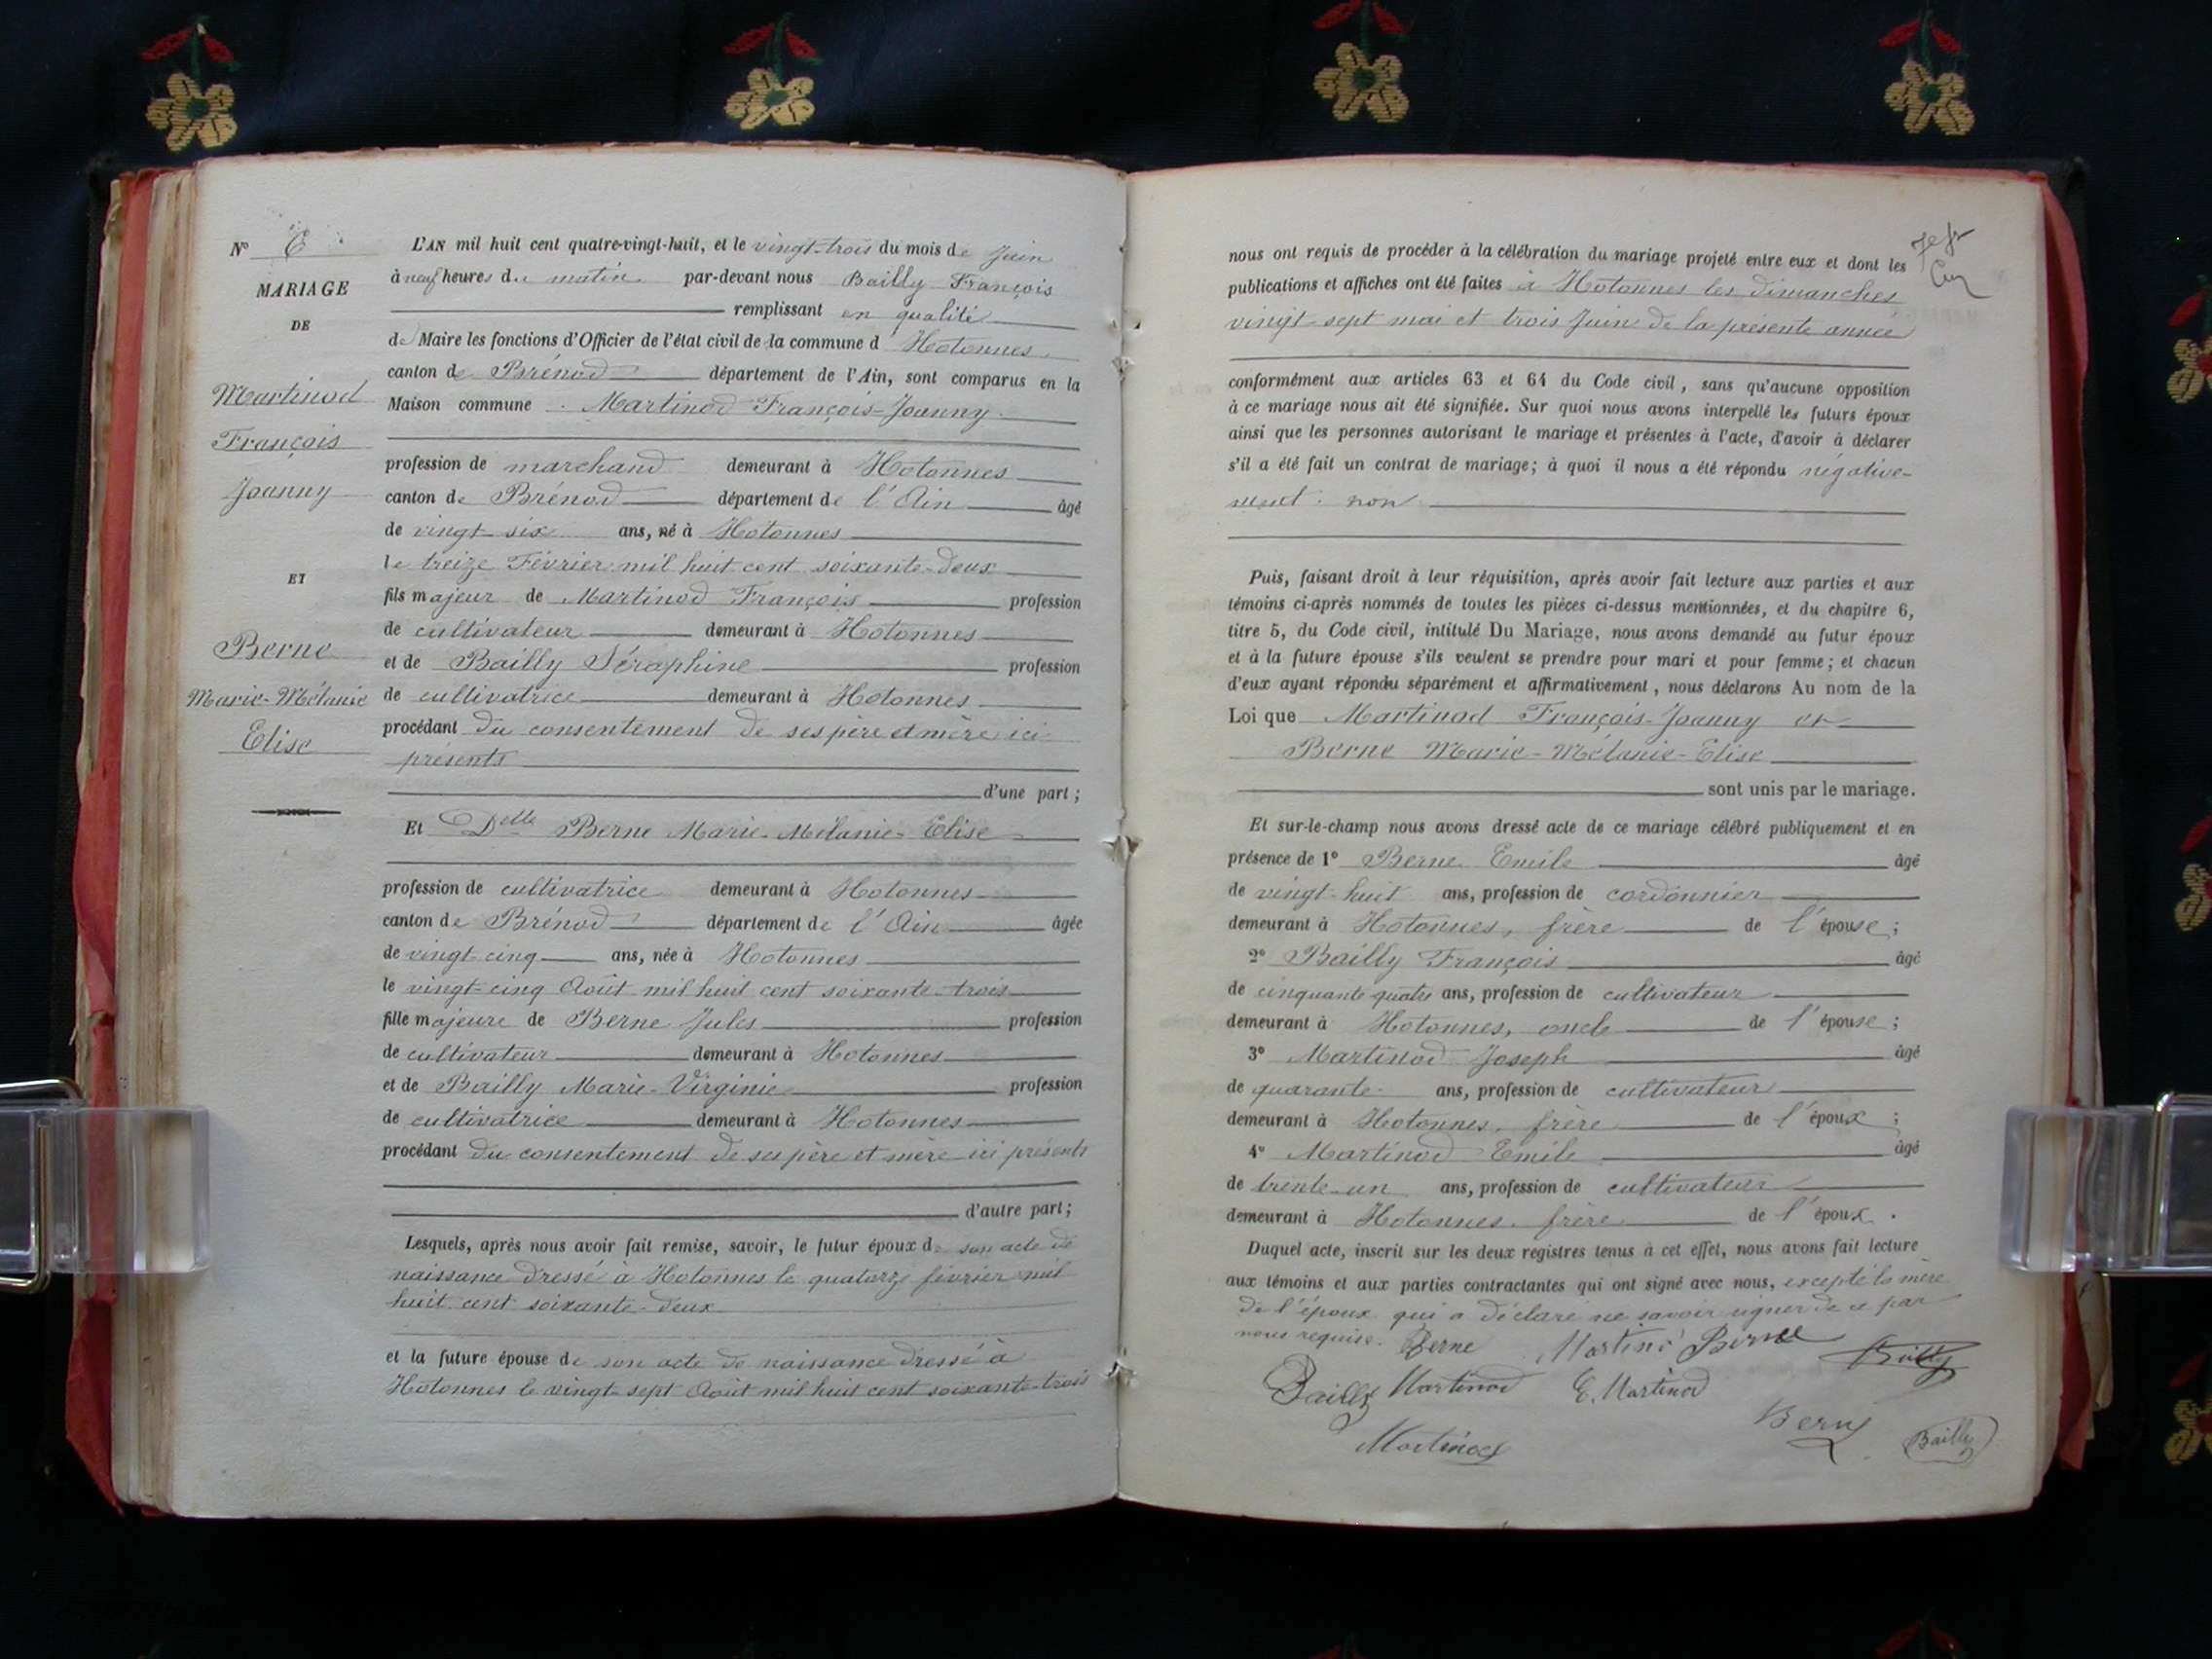 N° 6
MARIAGE
DE
Martinod
François
Joanny
ET
Berne
Marie-Mélanie
Elise
L'AN mil huit cent quatre-vingt-huit, et le vingt-trois du mois de Juin
à neuf heures du matin par-devant nous Bailly François
remplissant en qualité
de Maire les fonctions d'Officier de l'état civil de la commune d'Hotonnes
canton de Brénod département de l'Ain, sont comparus en la
Maison commune Martinod François-Joanny
profession de marchand demeurant à Hotonnes
canton de Brénod département de l'Ain âgé
de vingt-six ans, né à Hotonnes
le treize Février mil huit cent soixante-deux
fils majeur de Martinod François profession
de cultivateur demeurant à Hotonnes
et de Bailly Séraphine profession
de cultivatrice demeurant à Hotonnes
procédant du consentement de ses père et mère ici
présents
d'une part;
Et Delle Berne Marie-Mélanie-Elise
profession de cultivatrice demeurant à Hotonnes
canton de Brénod département de l'Ain âgée
de vingt-cinq ans, née à Hotonnes
le vingt-cinq Août mil huit cent soixante-trois
fille majeure de Berne Jules profession
de cultivateur demeurant à Hotonnes
et de Bailly Marie-Virginie profession
de cultivatrice demeurant à Hotonnes
procédant du consentement de ses père et mère ici présents
d'autre part;
Lesquels, après nous avoir fait remise, savoir, le futur époux de son acte de
naissance dressé à Hotonnes le quatorze février mil
huit cent soixante-deux
et la future épouse de son acte de naissance dressé à
Hotonnes le vingt-sept Août mil huit cent soixante-trois
nous ont requis de procéder à la célébration du mariage projeté entre eux et dont les
publications et affiches ont été faites à Hotonnes les dimanches
vingt-sept mai et trois Juin de la présente année
conformément aux articles 63 et 64 du Code civil, sans qu'aucune opposition
à ce mariage nous ait été signifiée. Sur quoi nous avons interpellé les futurs époux
ainsi que les personnes autorisant le mariage et présentes à l'acte, d'avoir à déclarer
s'il a été fait un contrat de mariage; à quoi il nous a été répondu négative-
ment: non
Puis, faisant droit à leur réquisition, après avoir fait lecture aux parties et aux
témoins ci-après nommés de toutes les pièces ci-dessus mentionnées, et du chapitre 6,
titre 5, du Code civil, intitulé Du Mariage, nous avons demandé au futur époux
et à la future épouse s'ils veulent se prendre pour mari et pour femme; et chacun
d'eux ayant répondu séparément et affirmativement, nous déclarons Au nom de la
Loi que Martinod François-Joanny et
Berne Marie-Mélanie-Elise
sont unis par le mariage.
Et sur-le-champ nous avons dressé acte de ce mariage célébré publiquement et en
présence de 1° Berne Emile âgé
de vingt-huit ans, profession de cordonnier
demeurant à Hotonnes, frère de l'épouse;
2° Bailly François âgé
de cinquante quatre ans, profession de cultivateur
demeurant à Hotonnes, oncle de l'épouse;
3° Martinod Joseph âgé
de quarante ans, profession de cultivateur
demeurant à Hotonnes, frère de l'époux;
4° Martinod Emile âgé
de trente-un ans, profession de cultivateur
demeurant à Hotonnes, frère de l'époux.
Duquel acte, inscrit sur les deux registres tenus à cet effet, nous avons fait lecture
aux témoins et aux parties contractantes qui ont signé avec nous, excepté la mère
de l'époux qui a déclaré ne savoir signer de ce par
nous requise. Berne Martinod Berne Bailly
Bailly Martinod E. Martinod
Martinod Berne Bailly